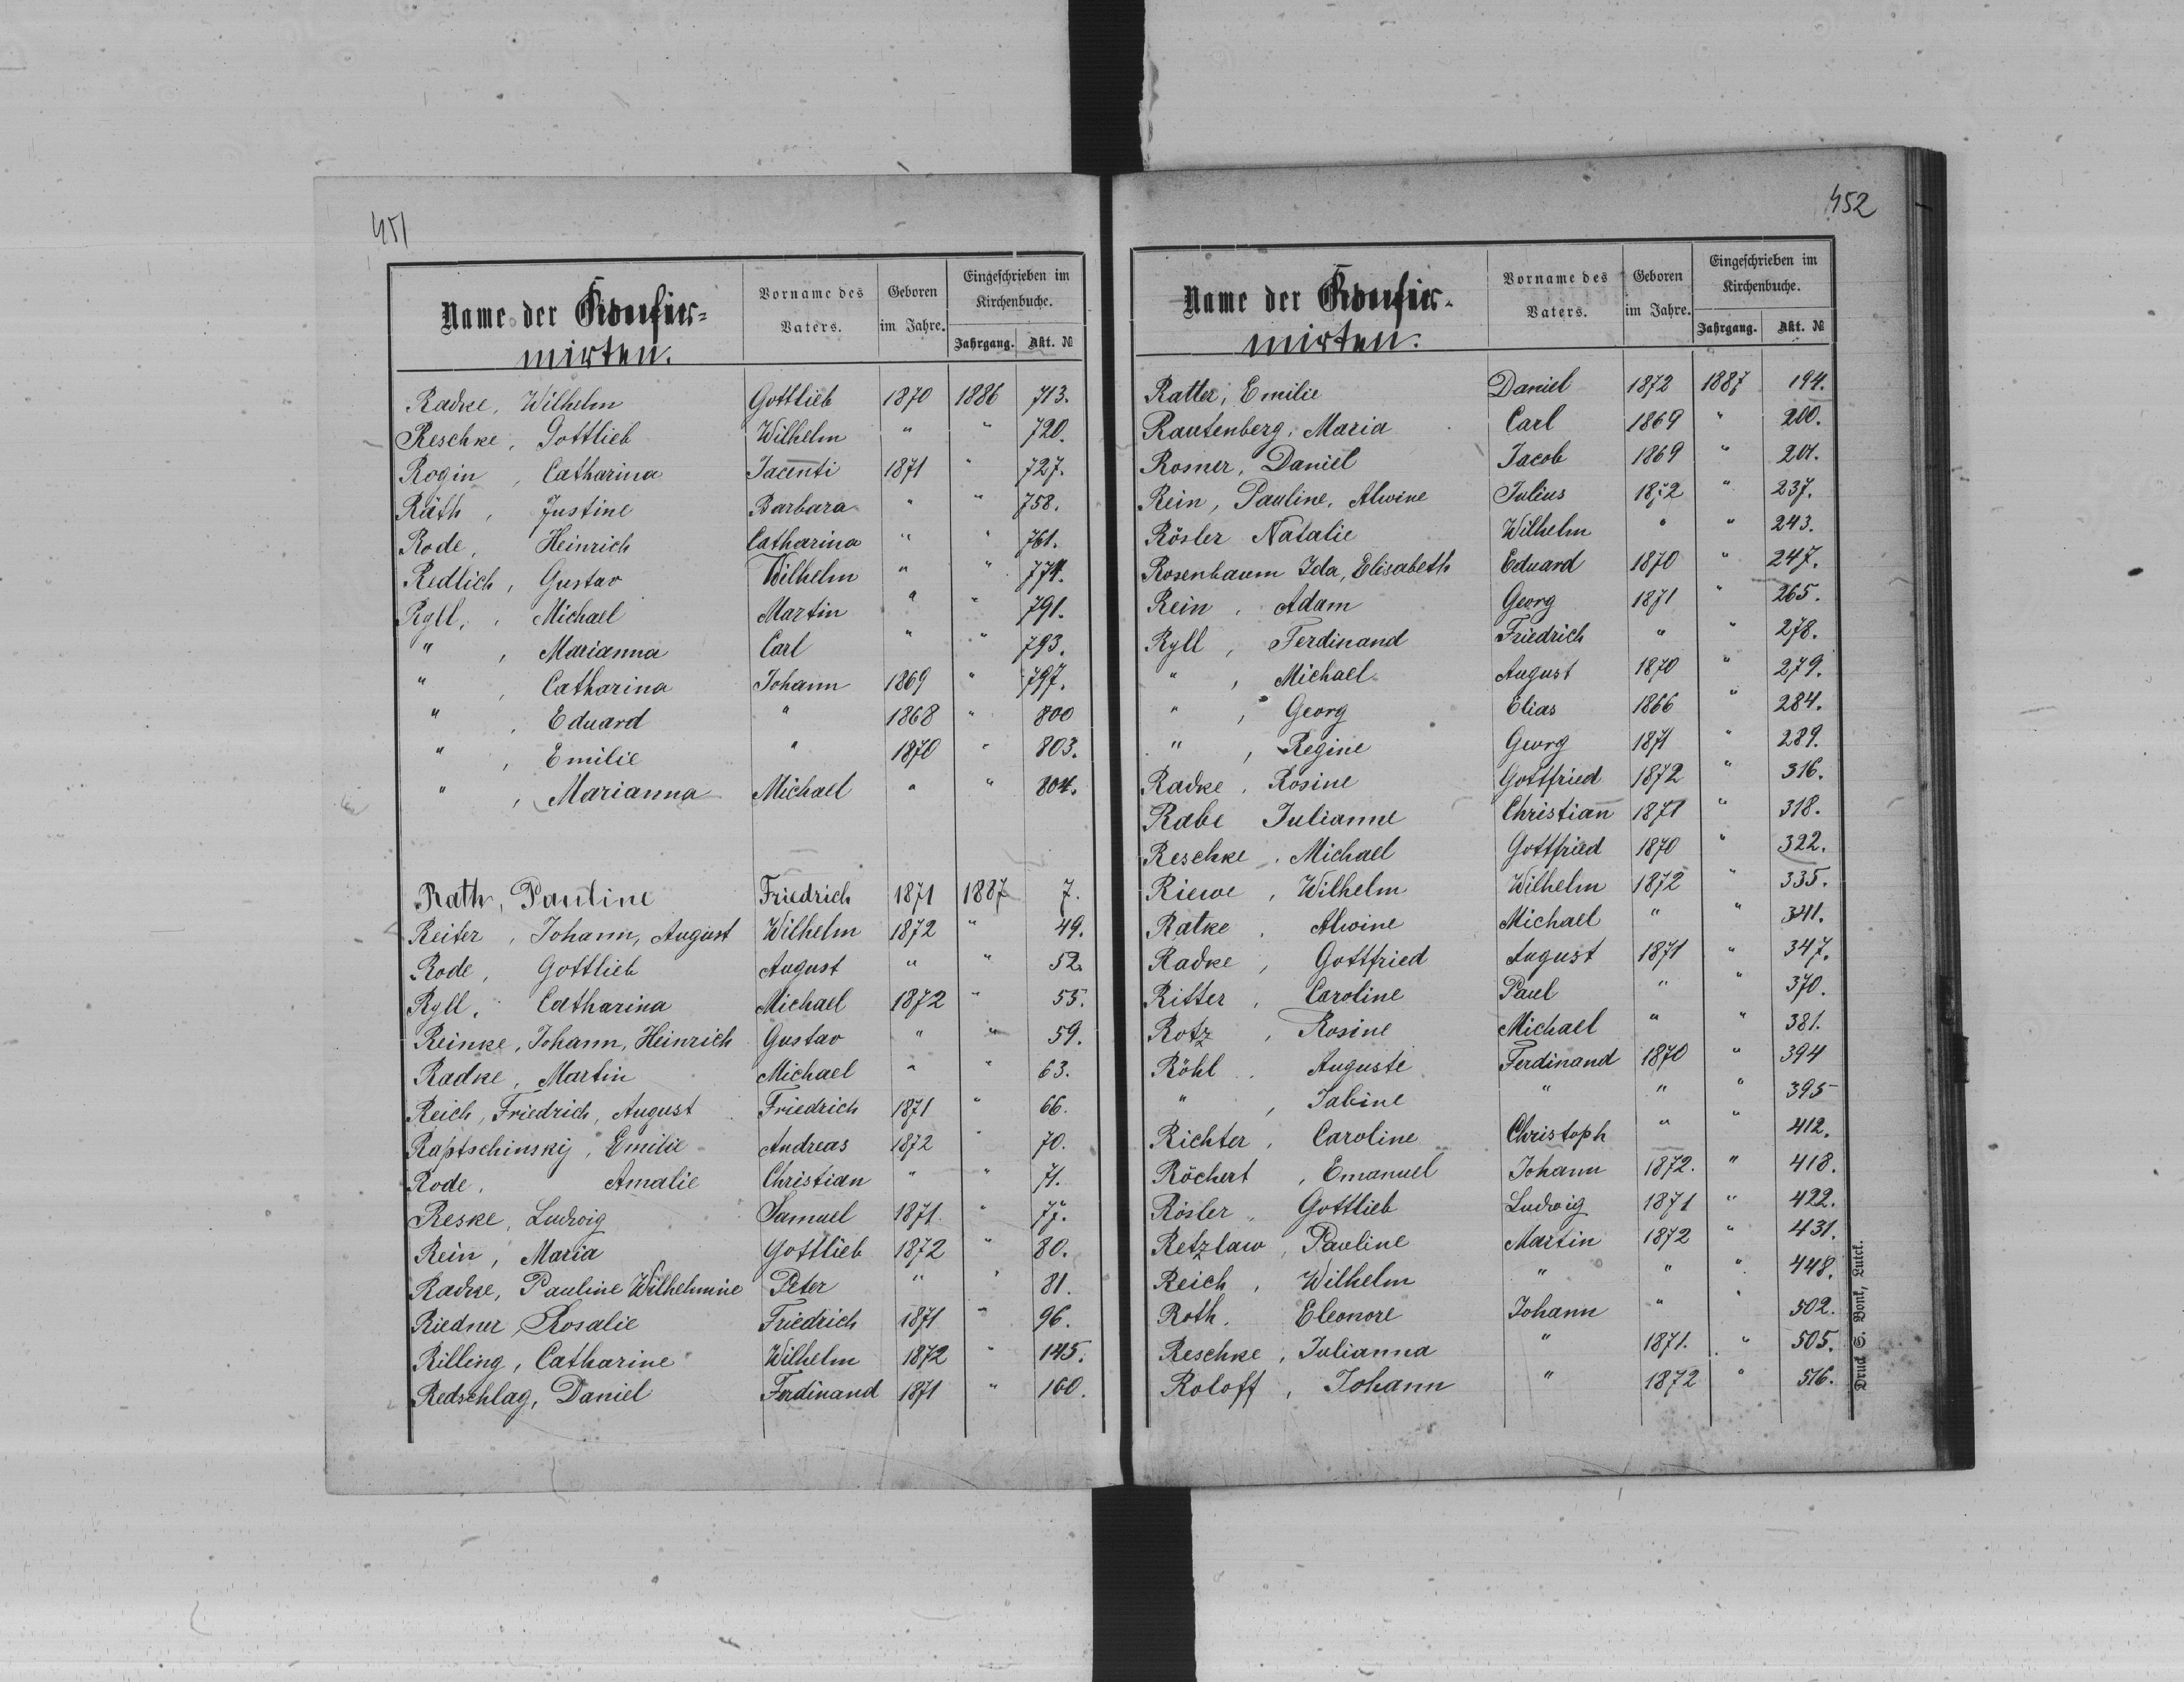 451
Name der Konfir=
mirten.
Vorname des
Vaters.
Geboren
im Jahre.
Eingeschrieben im
Kirchenbuche.
Jahrgang. Akt. №
Radke, Wilhelm Gottlieb 1870 1886 713.
Reschke, Gottlieb Wilhelm " " 720.
Rogin, Catharina Jacenti 1871 " 727.
Räth, Justine Barbara " " 758.
Rode, Heinrich Catharina " " 761.
Redlich, Gustav Wilhelm " " 774.
Ryll, Michael Martin " " 791.
" , Marianna Carl " " 793.
" , Catharina Johann 1869 " 797.
" , Eduard " 1868 " 800
" , Emilie " 1870 " 803.
" , Marianna Michael " " 804.
Rath, Pauline Friedrich 1871 1887 7.
Reiter, Johann, August Wilhelm 1872 " 49.
Rode, Gottlieb August " " 52.
Ryll, Catharina Michael 1872 " 55.
Reinke, Johann, Heinrich Gustav " " 59.
Radke, Martin Michael " " 63.
Reich, Friedrich, August Friedrich 1871 " 66.
Raptschinskij, Emilie Andreas 1872 " 70.
Rode, Amalie Christian " " 71.
Reske, Ludwig Samuel 1871 " 77.
Rein, Maria Gottlieb 1872 " 80.
Radke, Pauline Wilhelmine Peter " " 81.
Riedner, Rosalie Friedrich 1871 " 96.
Rilling, Catharine Wilhelm 1872 " 145.
Redschlag, Daniel Ferdinand 1871 " 160.
452
Name der Konfir=
mirten.
Vorname des
Vaters.
Geboren
im Jahre.
Eingeschrieben im
Kirchenbuche.
Jahrgang. Akt. №
Ratter, Emilie Daniel 1872 1887 194.
Rautenberg, Maria Carl 1869 " 200.
Rosner, Daniel Jacob 1869 " 201.
Rein, Pauline, Alwine Julius 1872 " 237.
Rösler Natalie Wilhelm " " 243.
Rosenbaum Ida, Elisabeth Eduard 1870 " 247.
Rein, Adam Georg 1871 " 265.
Ryll, Ferdinand Friedrich " " 278.
" , Michael August 1870 " 279.
" , Georg Elias 1866 " 284.
" , Regine Georg 1871 " 289.
Radke, Rosine Gottfried 1872 " 316.
Rabe Julianne Christian 1871 " 318.
Reschke, Michael Gottfried 1870 " 322.
Riewe, Wilhelm Wilhelm 1872 " 335.
Ratke, Alwine Michael " " 341.
Radke, Gottfried August 1871 " 347.
Ritter, Caroline Paul " " 370.
Rotz, Rosine Michael " " 381.
Röhl, Auguste Ferdinand 1870 " 394
" , Sabine " " " 395
Richter, Caroline Christoph " " 412.
Röchert, Emanuel Johann 1872. " 418.
Rösler, Gottlieb Ludwig 1871 " 422.
Retzlaw, Pauline Martin 1872 " 431.
Reich, Wilhelm " " " 448.
Roth, Eleonore Johann " " 502.
Reschke, Julianna " 1871. " 505.
Roloff, Johann " 1872 " 516.
Druck S. Bonk, Luck.